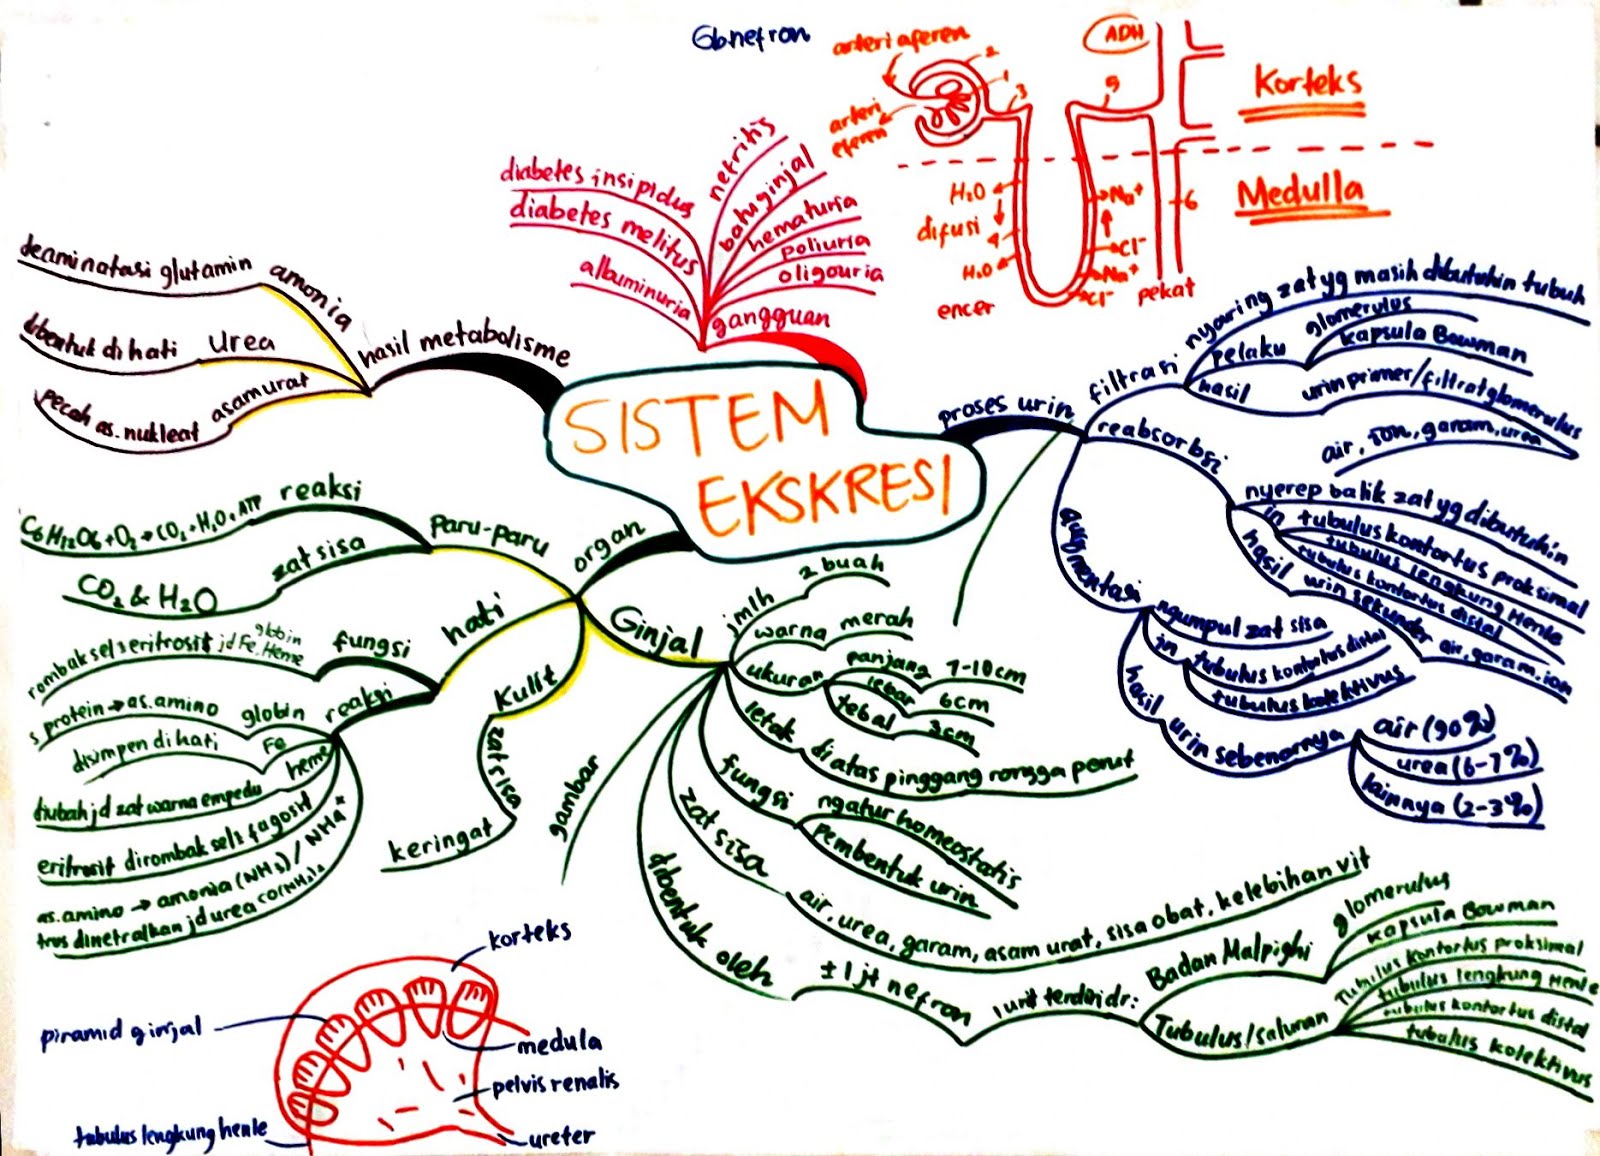 SISTEM
EKSKRESI
gangguan
albuminuria
diabetes melitus
diabetes insipidus
nefritis
batu ginjal
hematuria
poliuria
oligouria
arteri aferen
arteri
eferen
1
2
3
4
5
6
ADH
Korteks
Medulla
H2O
difusi
H2O
encer
Na+
Cl-
Na+
Cl-
pekat
proses urin
filtrasi
nyaring zat yg masih dibutuhin tubuh
pelaku
glomerulus
kapsula Bowman
hasil
urin primer/filtrat glomerulus
air, ion, garam, urea
reabsorbsi
nyerep balik zat yg dibutuhin
in
tubulus kontortus proksimal
tubulus lengkung Henle
tubulus kontortus distal
hasil
urin sekunder
air, garam, ion
augmentasi
ngumpul zat sisa
in
tubulus kontortus distal
tubulus kolektivus
hasil
urin sebenarnya
air (90%)
urea (6-7%)
lainnya (2-3%)
hasil metabolisme
amonia
deaminatasi glutamin
Urea
dibentuk di hati
asam urat
pecah as. nukleat
organ
paru-paru
reaksi
C6H12O6+O2→CO2+H2O+ATP
zat sisa
CO2 & H2O
hati
fungsi
rombak sel2 eritrosit jd Fe, Heme
globin
reaksi
globin
protein → as. amino
Fe
disimpen di hati
heme
diubah jd zat warna empedu
eritrosit dirombak sel2 fagosit
as. amino → amonia (NH3) / NH4+
trus dinetralkan jd urea CO(NH2)2
Kulit
zat sisa
keringat
Ginjal
jmlh
2 buah
warna
merah
ukuran
panjang
7-10cm
lebar
6cm
tebal
3cm
letak
di atas pinggang rongga perut
fungsi
ngatur homeostatis
pembentuk urin
zat sisa
air, urea, garam, asam urat, sisa obat, kelebihan vit
dibentuk oleh
± 1 jt nefron
1 unit terdiri dr:
Badan Malpighi
glomerulus
kapsula Bowman
Tubulus/saluran
tubulus kontortus proksimal
tubulus lengkung Henle
tubulus kontortus distal
tubulus kolektivus
gambar
korteks
piramid ginjal
medula
pelvis renalis
ureter
tubulus lengkung henle